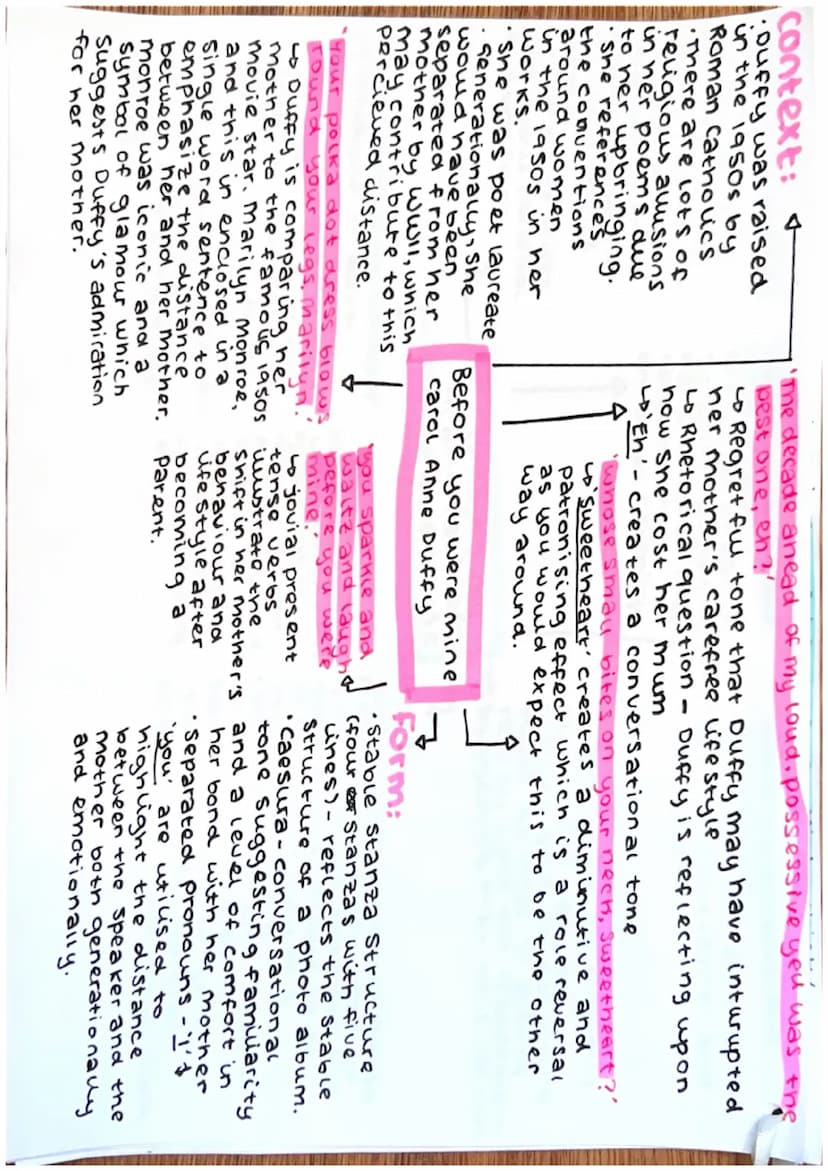 context:
• Duffy was raised
in the 1950s by
Roman Catholics
• There are lots of
religious allusions
in her poems due
to her upbringing.
• she references
the conventions
around women
in the 1950s in her
works.
• She was poet laureate
• Generationally, she
would have been
separated from her
mother by WWII, which
may contribute to this
percieved distance.
'The decade ahead of my loud, possessive yell was the
best one, eh?'
↳ Regretful tone that Duffy may have interupted
her mother's carefree lifestyle
↳ Rhetorical question - Duffy is reflecting upon
how she cost her mum
↳ 'Eh' - creates a conversational tone
'whose small bites on your neck, sweetheart?'
↳ 'sweetheart' creates a diminutive and
patronising effect which is a role reversal
as you would expect this to be the other
way around.
Before you were mine
Carol Anne Duffy
'Your polka dot dress blows
round your legs. Marilyn.'
↳ Duffy is comparing her
mother to the famous 1950s
movie star, Marilyn Monroe,
and this in enclosed in a
single word sentence to
emphasize the distance
between her and her mother.
Monroe was iconic and a
symbol of glamour which
suggests Duffy's admiration
for her mother.
'you sparkle and
waltz and laugh
before you were
mine.'
↳ jovial present
tense verbs
illustrate the
shift in her mother's
behaviour and
lifestyle after
becoming a
parent.
form:
• Stable stanza structure
(four stanzas with five
lines) - reflects the stable
structure of a photo album.
• Caesura - conversational
tone suggesting familiarity
and a level of comfort in
her bond with her mother
• Separated pronouns - 'I' &
'you' are utilised to
highlight the distance
between the speaker and the
mother both generationally
and emotionally.